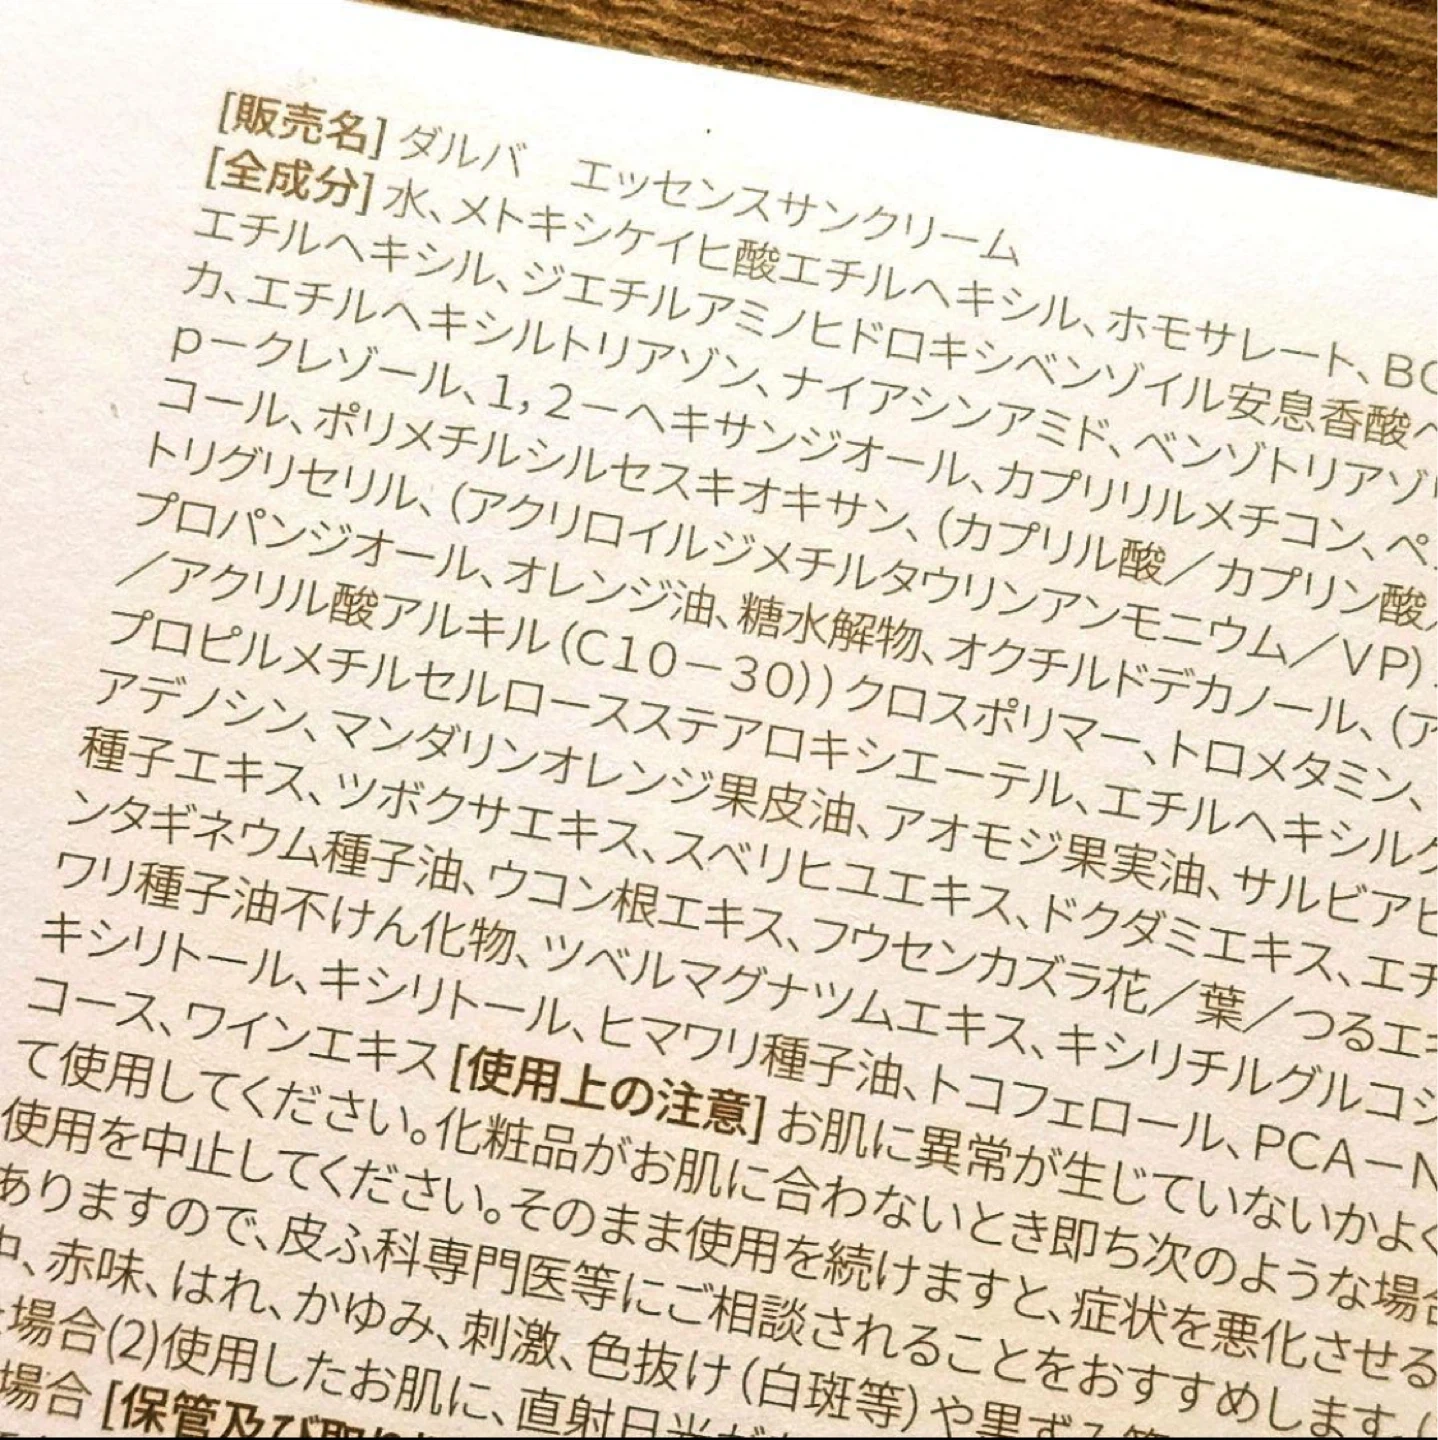 [販売名] ダルバ　エッセンスサンクリーム
[全成分] 水、メトキシケイヒ酸エチルヘキシル、ホモサレート、BG
エチルヘキシル、ジエチルアミノヒドロキシベンゾイル安息香酸ヘ
カ、エチルヘキシルトリアゾン、ナイアシンアミド、ベンゾトリアゾリ
p－クレゾール、1，2－ヘキサンジオール、カプリリルメチコン、ペ
コール、ポリメチルシルセスキオキサン、(カプリル酸／カプリン酸／
トリグリセリル、(アクリロイルジメチルタウリンアンモニウム／VP)
プロパンジオール、オレンジ油、糖水解物、オクチルドデカノール、(ア
／アクリル酸アルキル(C10－30))クロスポリマー、トロメタミン、
プロピルメチルセルロースステアロキシエーテル、エチルヘキシルグ
アデノシン、マンダリンオレンジ果皮油、アオモジ果実油、サルビアヒ
種子エキス、ツボクサエキス、スベリヒユエキス、ドクダミエキス、エチ
ンタギネウム種子油、ウコン根エキス、フウセンカズラ花／葉／つるエキ
ワリ種子油不けん化物、ツベルマグナツムエキス、キシリチルグルコシ
キシリトール、キシリトール、ヒマワリ種子油、トコフェロール、PCA－N
コース、ワインエキス [使用上の注意] お肌に異常が生じていないかよく
て使用してください。化粧品がお肌に合わないとき即ち次のような場合
使用を中止してください。そのまま使用を続けますと、症状を悪化させる
ありますので、皮ふ科専門医等にご相談されることをおすすめします。(
中、赤味、はれ、かゆみ、刺激、色抜け(白斑等)や黒ずみ等
場合(2)使用したお肌に、直射日光が
場合 [保管及び取り